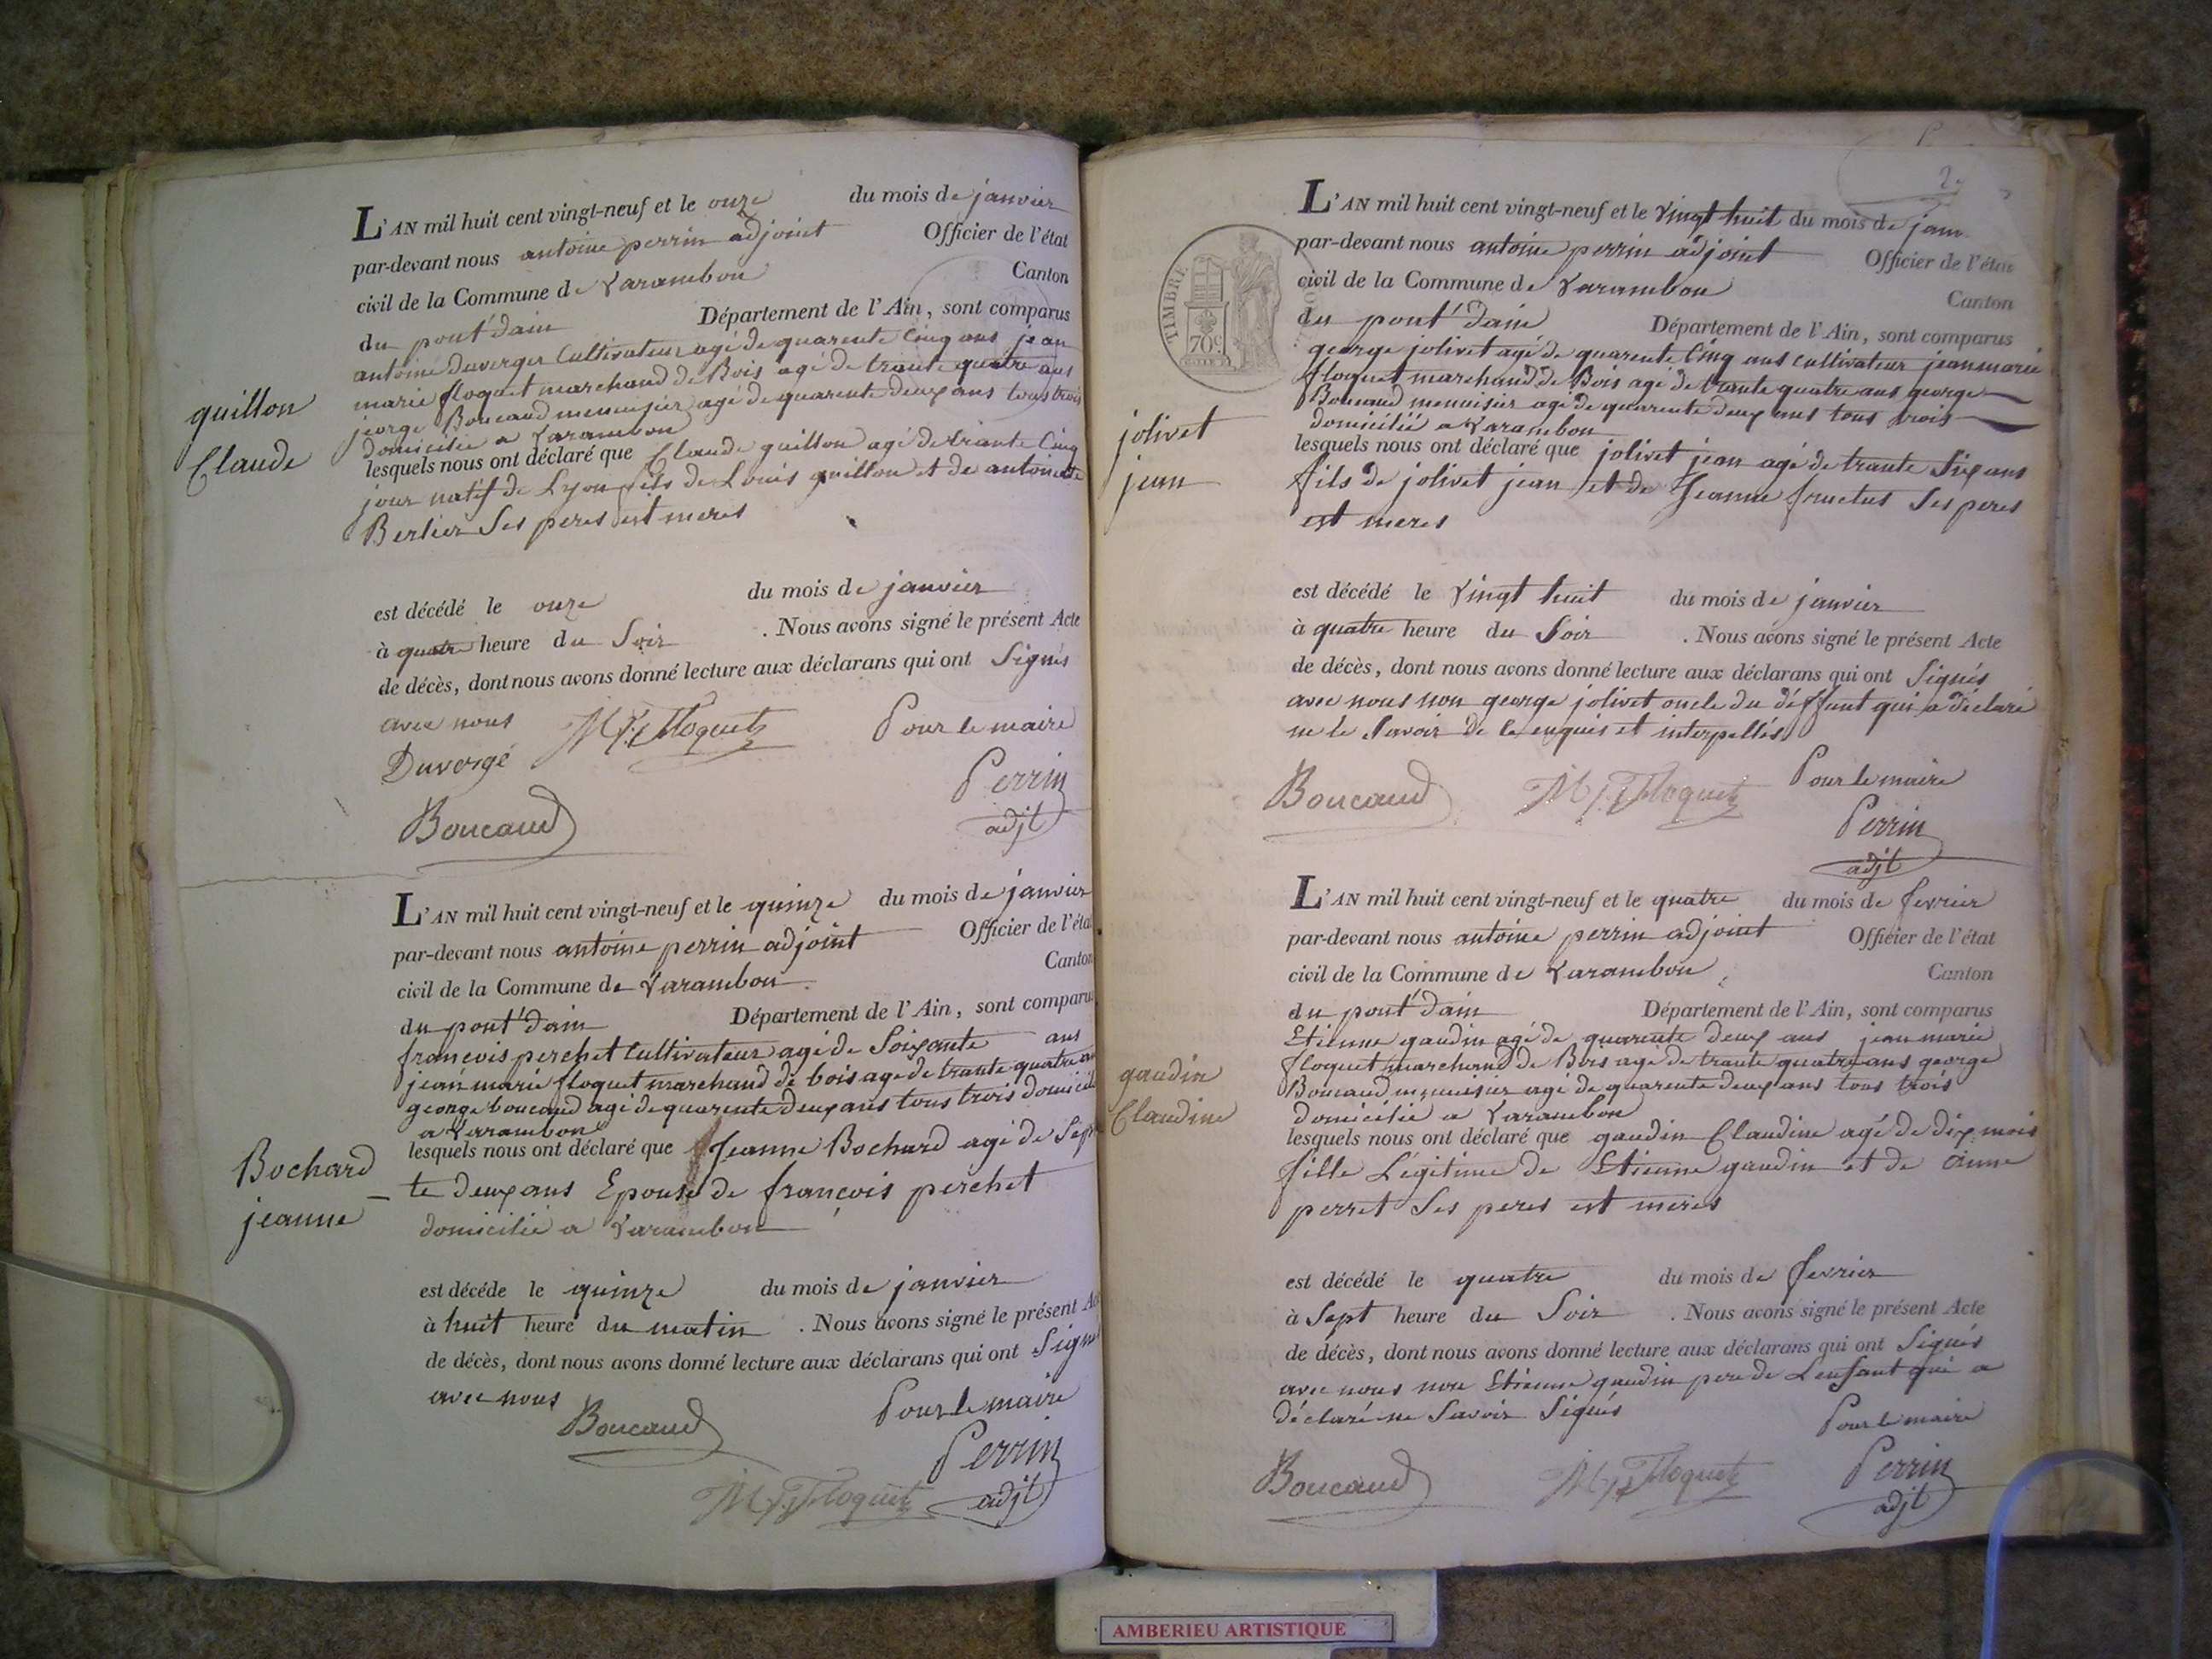 L'AN mil huit cent vingt-neuf et le onze du mois de janvier
par-devant nous antoine perrin adjoint Officier de l'état
civil de la Commune de Varambon Canton
du pont'dain Département de l'Ain, sont comparus
antoine duverger Cultivateur agé de quarente Cinq ans jean
marie floquet marchand de Bois agé de trante quatre ans
jeorge Boucaud menuisier agé de quarente deux ans tous trois
domicilie a Varambon
lesquels nous ont déclaré que Claude guillon agé de trante Cinq
jour natif de Lyon fils de Louis guillon et de antoinette
Berlier Ses peres est meres
guillon
Claude
est décédé le onze du mois de janvier
à quatre heure du Soir . Nous avons signé le présent Acte
de décès, dont nous avons donné lecture aux déclarans qui ont Signés
avec nous
M J Floquet
Pour le maire
Duvergé
Perrin
adjt
Boucaud
L'AN mil huit cent vingt-neuf et le quinze du mois de janvier
par-devant nous antoine perrin adjoint Officier de l'état
civil de la Commune de Varambon Canton
du pont'dain Département de l'Ain, sont comparus
francois perchet Cultivateur agé de Soixante ans
jean marie floquet marchand de bois age de trante quatre an
george boucaud agé de quarente deux ans tous trois domicili
a Varambon
lesquels nous ont déclaré que Jeanne Bochard agé de Sep
te deux ans Epouse de françois perchet
domicilié a Varambon
Bochard
jeanne
est décéde le quinze du mois de janvier
à huit heure du matin . Nous avons signé le présent Ac
de décès, dont nous avons donné lecture aux déclarans qui ont Signé
avec nous
Boucaud
Pour le maire
Perrin
adjt
M J Floquet
2
L'AN mil huit cent vingt-neuf et le Vingt huit du mois de janv
par-devant nous antoine perrin adjoint Officier de l'état
civil de la Commune de Varambon Canton
du pont'dain Département de l'Ain, sont comparus
TIMBRE
70c
george jolivet agé de quarente Cinq ans cultivateur jean marie
floquet marchand de Bois agé de trante quatre ans george
Boucaud menuisier agé de quarente deux ans tous trois
domicilié a Varambon
lesquels nous ont déclaré que jolivet jean agé de trante Six ans
fils de jolivet jean et de Jeanne fructus Ses peres
est meres
jolivet
jean
est décédé le Vingt huit du mois de janvier
à quatre heure du Soir . Nous avons signé le présent Acte
de décès, dont nous avons donné lecture aux déclarans qui ont Signés
avec nous non george jolivet oncle du déffunt qui a déclaré
ne le Savoir de le enquis et interpellés
Boucaud
M J Floquet
Pour le maire
Perrin
adjt
L'AN mil huit cent vingt-neuf et le quatre du mois de fevrier
par-devant nous antoine perrin adjoint Officier de l'état
civil de la Commune de Varambon Canton
du pont'dain Département de l'Ain, sont comparus
Etienne gaudin agé de quarente deux ans jean marie
floquet marchand de Bois age de trante quatre ans george
Boucaud menuisier agé de quarente deux ans tous trois
domicilié a Varambon
lesquels nous ont déclaré que gaudin Claudine agé de dix mois
fille Légitime de Etienne gaudin et de anne
perret Ses peres est meres
gaudin
Claudine
est décédé le quatre du mois de fevrier
à Sept heure du Soir . Nous avons signé le présent Acte
de décès, dont nous avons donné lecture aux déclarans qui ont Signés
avec nous non Etienne gaudin pere de Lenfant qui a
déclaré ne Savoir Signés
Pour le maire
Boucaud
M J Floquet
Perrin
adjt
AMBERIEU ARTISTIQUE